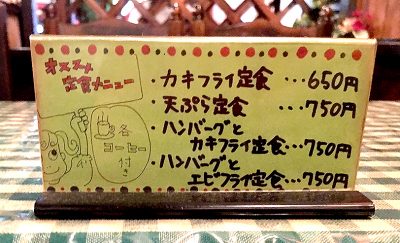 オススメ
定食メニュー
・カキフライ定食…650円
・天ぷら定食…750円
・ハンバーグと
カキフライ定食…750円
・ハンバーグと
エビフライ定食…750円
各
コーヒー
付き
付